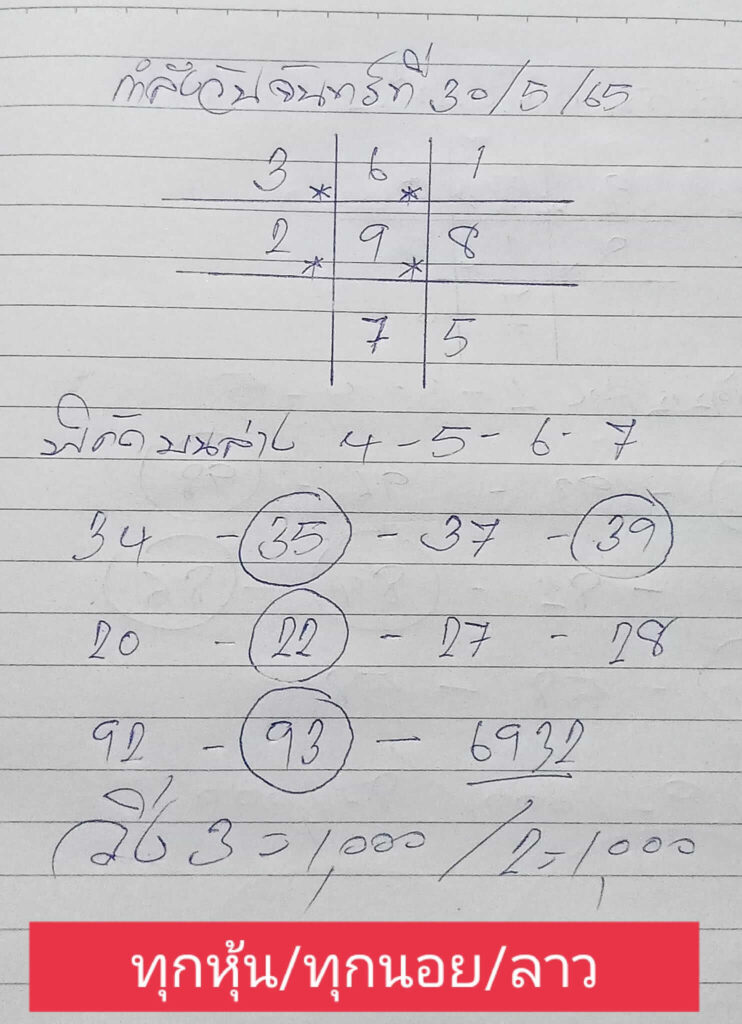 กำลังวันจันทร์ที่ 30/5/65
3 * 6 * 1
2 * 9 * 8
7 5
พิกัด บนล่าง 4-5-6-7
34 - 35 - 37 - 39
20 - 22 - 27 - 28
92 - 93 - 6932
วิ่ง 3 = 1,000 / 2 = 1,000
ทุกหุ้น/ทุกนอย/ลาว